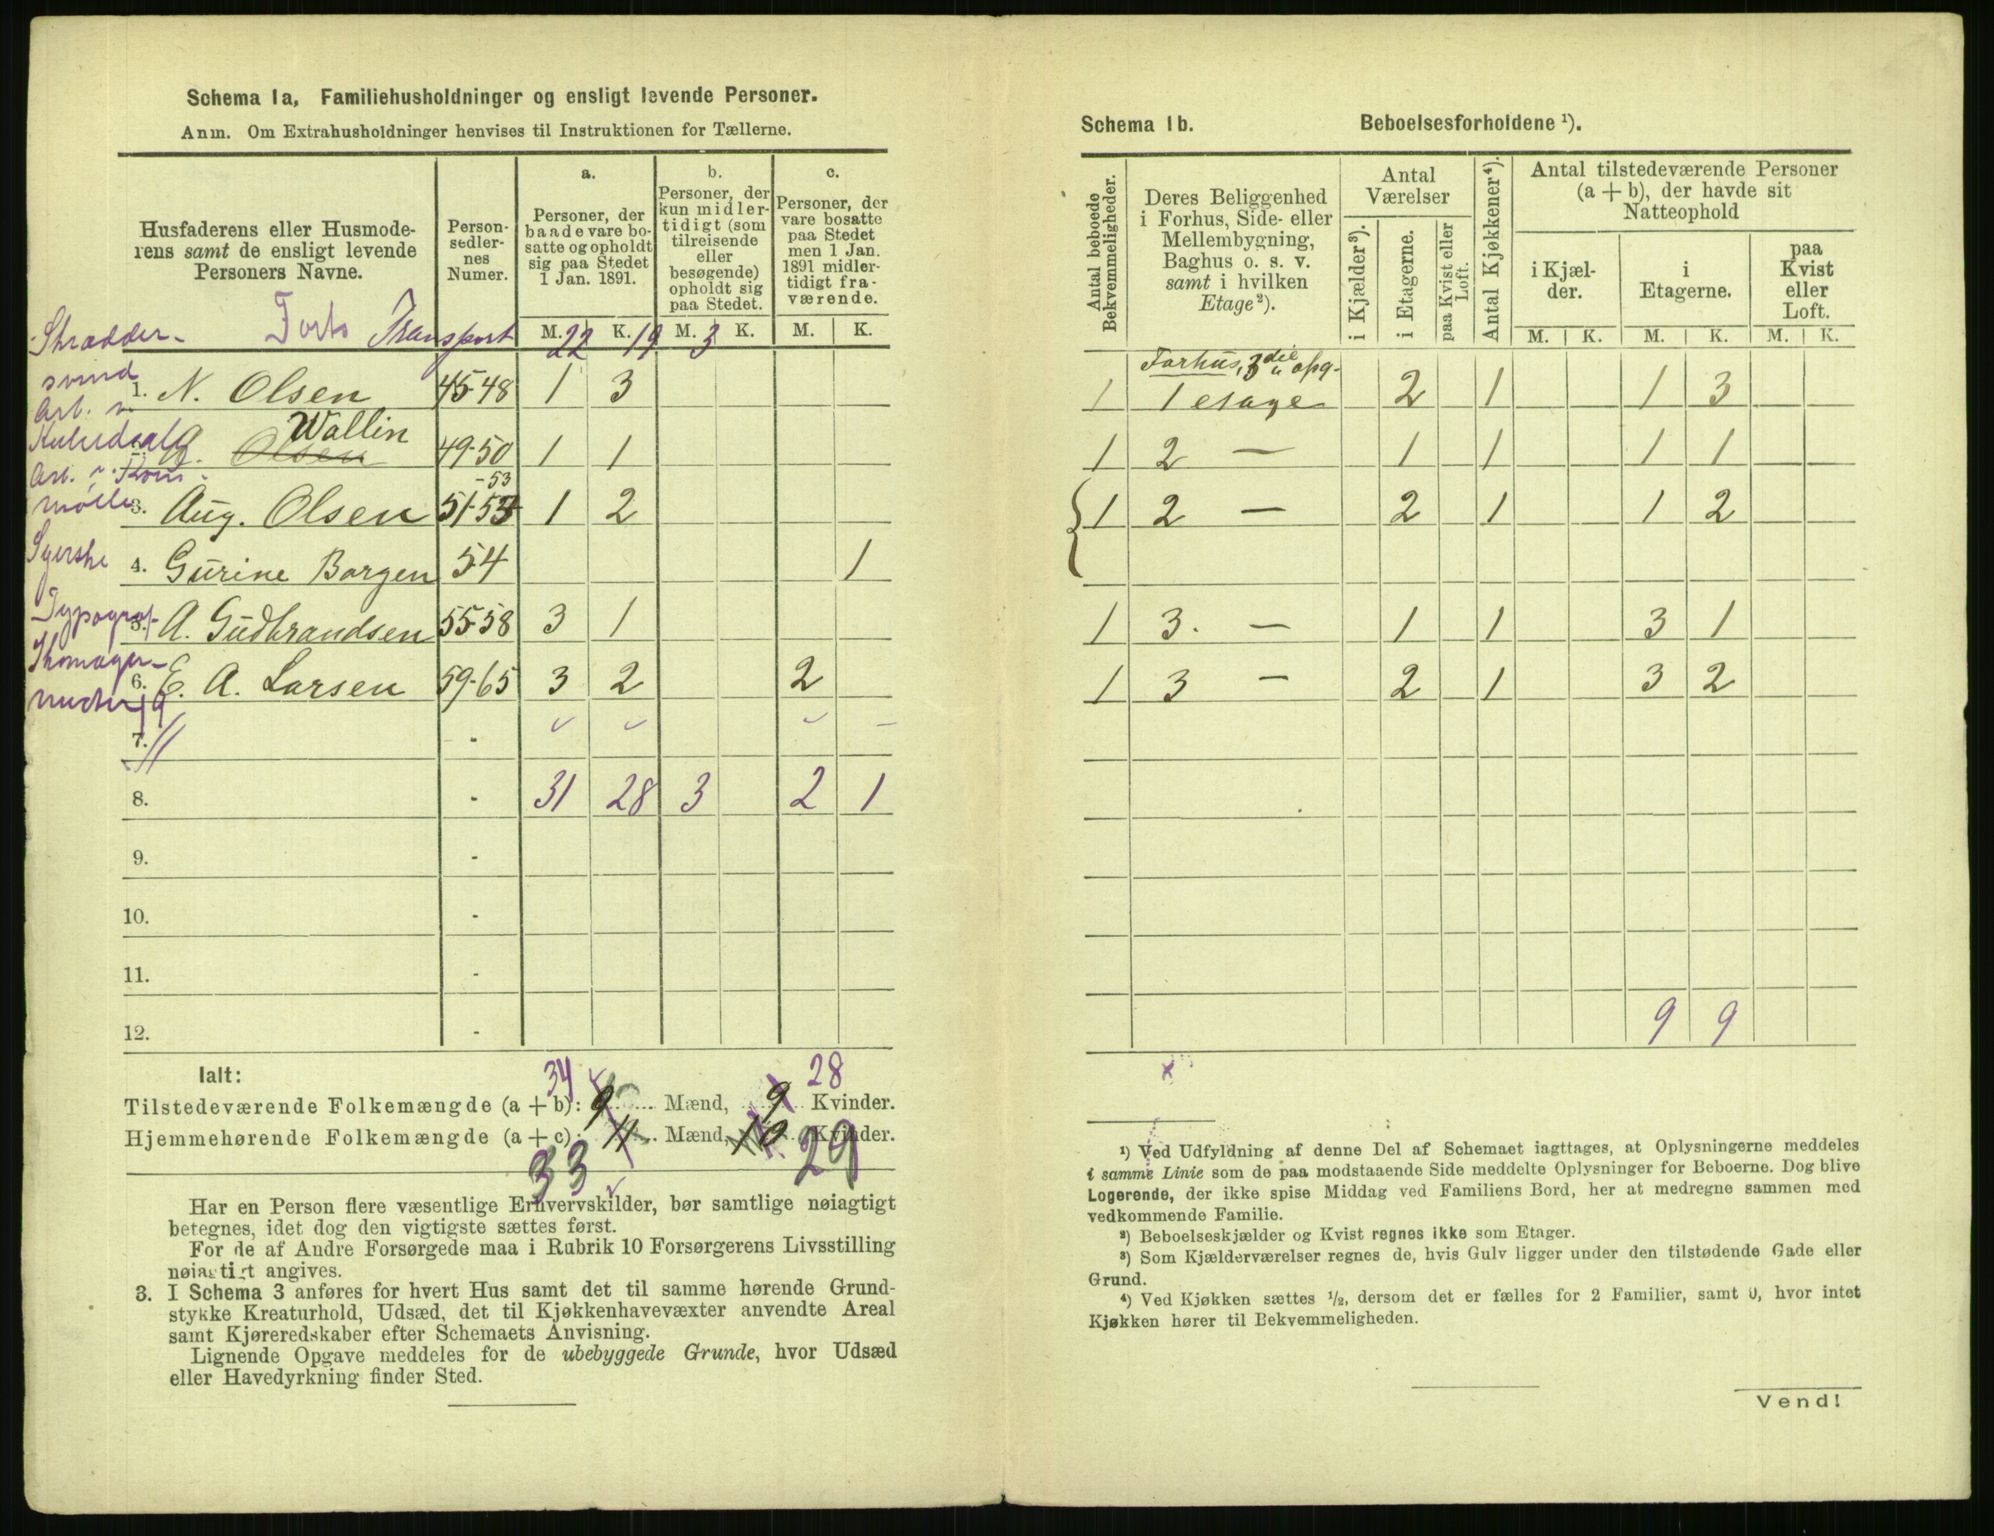 Schema 1a, Familiehusholdninger og ensligt levende Personer.
Anm. Om Extrahusholdninger henvises til Instruktionen for Tællerne.
Husfaderens eller Husmode-
rens samt de ensligt levende
Personers Navne.
Person-
sedler-
nes
Numer.
a.
Personer, der
baade vare bo-
satte og opholdt
sig paa Stedet
1 Jan. 1891.
b.
Personer, der
kun midler-
tidigt (som
tilreisende
eller
besøgende)
opholdt sig
paa Stedet.
c.
Personer, der
vare bosatte
paa Stedet
men 1 Jan.
1891 midler-
tidigt fra-
værende.
M. K. M. K. M. K.
Forts Transport 22 19 3
Skrædder-
svend
1. N. Olsen 45-48 1 3
Arb.
2. A. Olsen Wallin 49-50 1 1
Arb.
mølle
3. Aug. Olsen 51-53 -53 1 2
Syerske
4. Gurine Borgen 54 1
Typograf
5. A. Gudbrandsen 55-58 3 1
Skomager-
6. E. A. Larsen 59-65 3 2 2
7.
8. 31 28 3 2 1
9.
10.
11.
12.
Ialt:
34 28
Tilstedeværende Folkemængde (a + b): 9 Mænd, 9 Kvinder.
Hjemmehørende Folkemængde (a + c): 11 Mænd, 10 Kvinder.
33 29
Har en Person flere væsentlige Erhvervskilder, bør samtlige nøiagtigt
betegnes, idet dog den vigtigste sættes først.
For de af Andre Forsørgede maa i Rubrik 10 Forsørgerens Livsstilling
nøiagtigt angives.
3. I Schema 3 anføres for hvert Hus samt det til samme hørende Grund-
stykke Kreaturhold, Udsæd, det til Kjøkkenhavevæxter anvendte Areal
samt Kjøreredskaber efter Schemaets Anvisning.
Lignende Opgave meddeles for de ubebyggede Grunde, hvor Udsæd
eller Havedyrkning finder Sted.
Schema 1b. Beboelsesforholdene ¹).
Antal beboede
Bekvemmeligheder.
Deres Beliggenhed
i Forhus, Side- eller
Mellembygning,
Baghus o. s. v.
samt i hvilken
Etage ²).
Antal
Værelser
i Kjælder ³).
i Etagerne.
paa Kvist eller
Loft.
Antal Kjøkkener ⁴).
Antal tilstedeværende Personer
(a + b), der havde sit
Natteophold
i Kjæl-
der.
i
Etagerne.
paa
Kvist
eller
Loft.
M. K. M. K. M. K.
Forhus, 3die opg.
1 1 etage 2 1 1 3
1 2 — 1 1 1 1
1 2 — 2 1 1 2
1 3. — 1 1 3 1
1 3 — 2 1 3 2
9 9
¹) Ved Udfyldning af denne Del af Schemaet iagttages, at Oplysningerne meddeles
i samme Linie som de paa modstaaende Side meddelte Oplysninger for Beboerne. Dog blive
Logerende, der ikke spise Middag ved Familiens Bord, her at medregne sammen med
vedkommende Familie.
²) Beboelseskjælder og Kvist regnes ikke som Etager.
³) Som Kjælderværelser regnes de, hvis Gulv ligger under den tilstødende Gade eller
Grund.
⁴) Ved Kjøkken sættes ½, dersom det er fælles for 2 Familier, samt 0, hvor intet
Kjøkken hører til Bekvemmeligheden.
Vend!